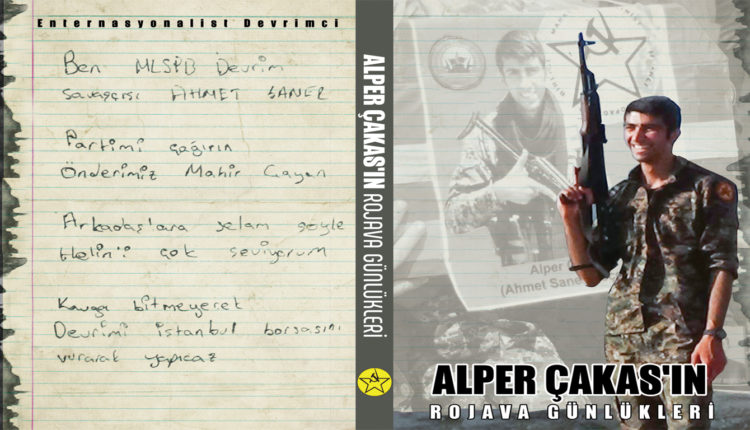 Enternasyonalist Devrimci
Ben MLSPB Devrim
savaşçısı AHMET ŞANER
Partimi çağırın
Önderimiz Mahir Çayan
Arkadaş'lara selam söyle
Helin'i çok seviyorum
Kavga bitmeyecek
Devrimi istanbul borsasını
vurarak yapıcaz
ALPER ÇAKAS'IN ROJAVA GÜNLÜKLERİ
Alper
(Ahmet Şane
ALPER ÇAKAS'IN
ROJAVA GÜNLÜKLERİ